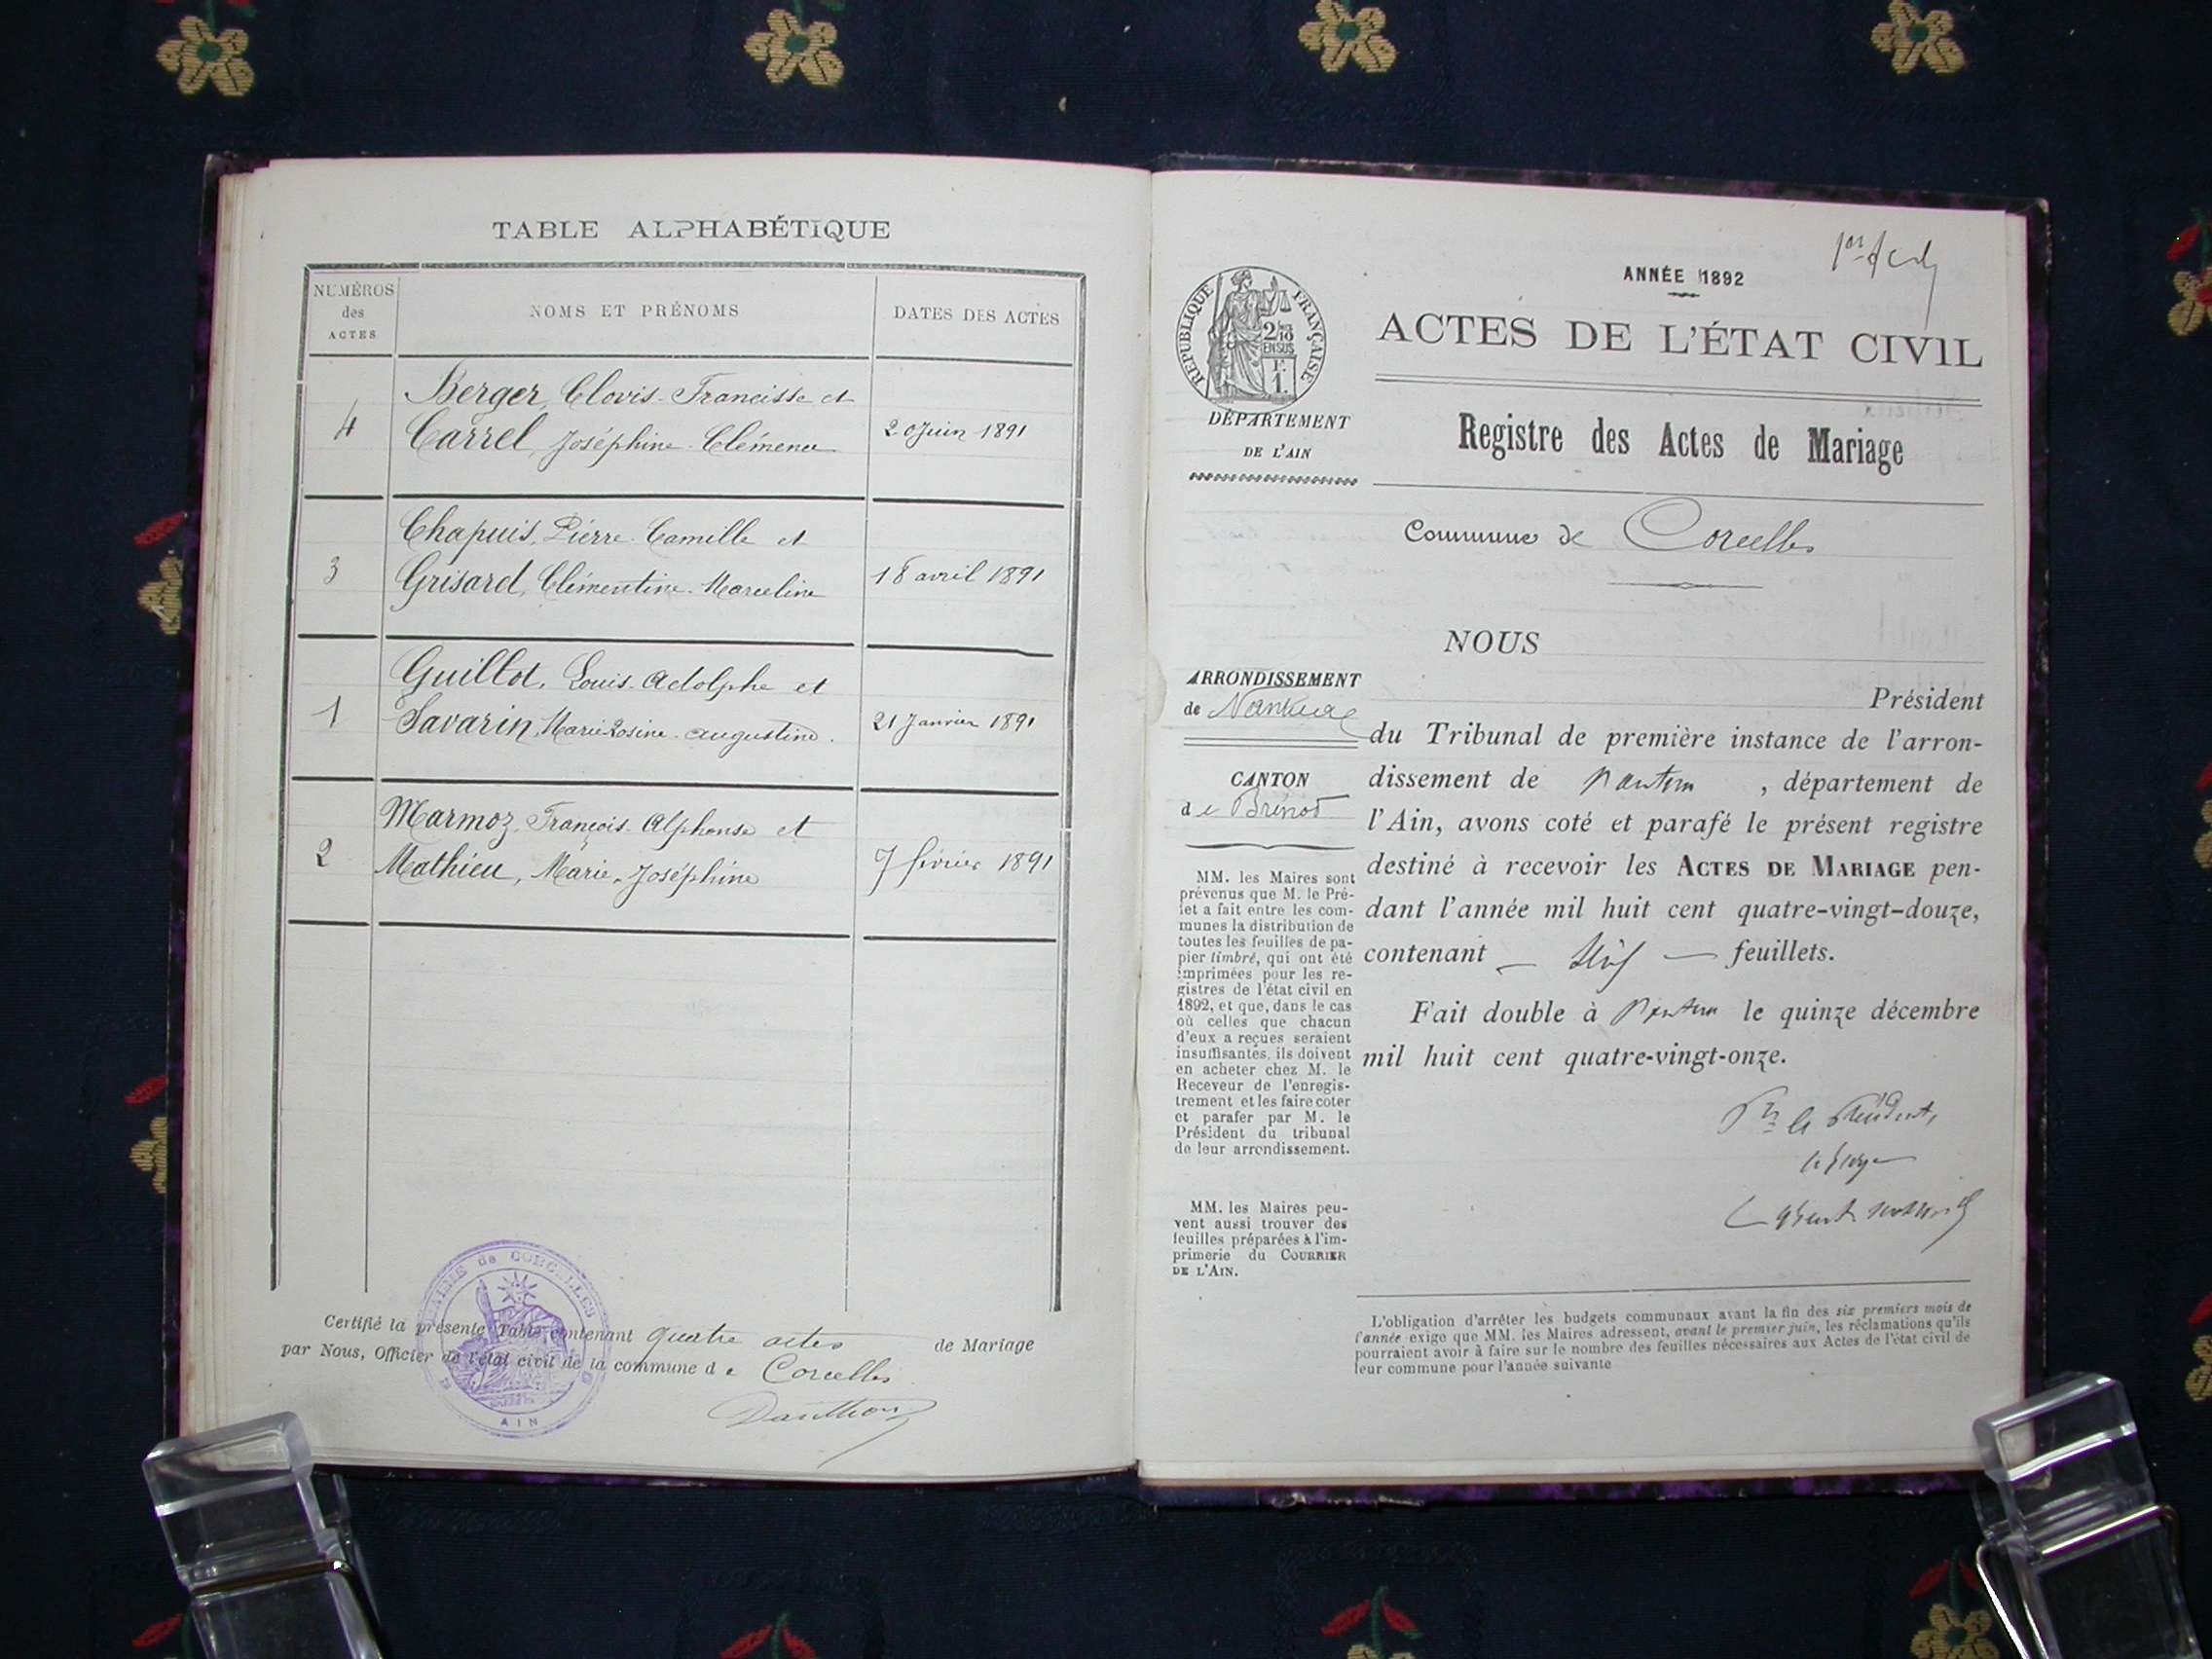 TABLE ALPHABÉTIQUE
NUMÉROS
des
ACTES
NOMS ET PRÉNOMS
DATES DES ACTES
4
Berger, Clovis-Francisse et
Carrel, Joséphine-Clémence
20 Juin 1891
3
Chapuis, Pierre-Camille et
Grisard, Clémentine-Marceline
18 avril 1891
1
Guillot, Louis-Adolphe et
Savarin, Marie-Rosine-Augustine.
21 Janvier 1891
2
Marmoz, François-Alphonse et
Mathieu, Marie-Joséphine
7 février 1891
Certifié la présente Table contenant quatre actes de Mariage
par Nous, Officier de l'état civil de la commune de Corcelles
MAIRIE de CORCELLES
AIN
ANNÉE 1892
RÉPUBLIQUE FRANÇAISE
2/10
EN SUS
F.
1.
ACTES DE L'ÉTAT CIVIL
DÉPARTEMENT
DE L'AIN
Registre des Actes de Mariage
Commune de Corcelles
ARRONDISSEMENT
de Nantua
CANTON
de Brénod
MM. les Maires sont
prévenus que M. le Pré-
fet a fait entre les com-
munes la distribution de
toutes les feuilles de pa-
pier timbré, qui ont été
imprimées pour les re-
gistres de l'état civil en
1892, et que, dans le cas
où celles que chacun
d'eux a reçues seraient
insuffisantes, ils doivent
en acheter chez M. le
Receveur de l'enregis-
trement et les faire coter
et parafer par M. le
Président du tribunal
de leur arrondissement.
MM. les Maires peu-
vent aussi trouver des
feuilles préparées à l'im-
primerie du COURRIER
DE L'AIN.
NOUS
Président
du Tribunal de première instance de l'arron-
dissement de Nantua , département de
l'Ain, avons coté et parafé le présent registre
destiné à recevoir les ACTES DE MARIAGE pen-
dant l'année mil huit cent quatre-vingt-douze,
contenant feuillets.
Fait double à Nantua le quinze décembre
mil huit cent quatre-vingt-onze.
Pr le Président,
le Juge
L'obligation d'arrêter les budgets communaux avant la fin des six premiers mois de
l'année exige que MM. les Maires adressent, avant le premier juin, les réclamations qu'ils
pourraient avoir à faire sur le nombre des feuilles nécessaires aux Actes de l'état civil de
leur commune pour l'année suivante